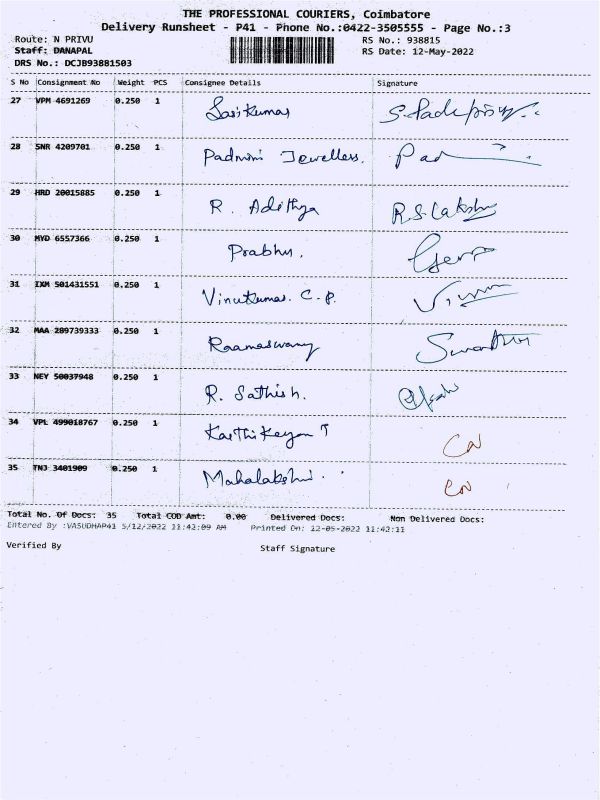 THE PROFESSIONAL COURIERS, Coimbatore
Delivery Runsheet - P41 - Phone No.:0422-3505555 - Page No.:3
Route: N PRIVU RS No.: 938815
Staff: DANAPAL RS Date: 12-May-2022
DRS No.: DCJB93881503
S No Consignment No Weight PCS Consignee Details Signature
27 VPM 4691269 0.250 1 Sasikumar
28 SNR 4209701 0.250 1 Padmini Jewellers. Pad
29 HRD 20015885 0.250 1 R. Adithya R.S. Lakshm
30 MYD 6557366 0.250 1 Prabhu.
31 IXM 501431551 0.250 1 Vinukumar. C.P.
32 MAA 289739333 0.250 1 Raamaswamy
33 NEY 50037948 0.250 1 R. Sathish.
34 VPL 499018767 0.250 1 Karthikeyan T
35 TNJ 3401909 0.250 1 Mahalakshmi.
Total No. Of Docs: 35 Total COD Amt: 0.00 Delivered Docs: Non Delivered Docs:
Entered By :VASUDHAP41 5/12/2022 11:42:09 AM Printed On: 12-05-2022 11:42:11
Verified By Staff Signature